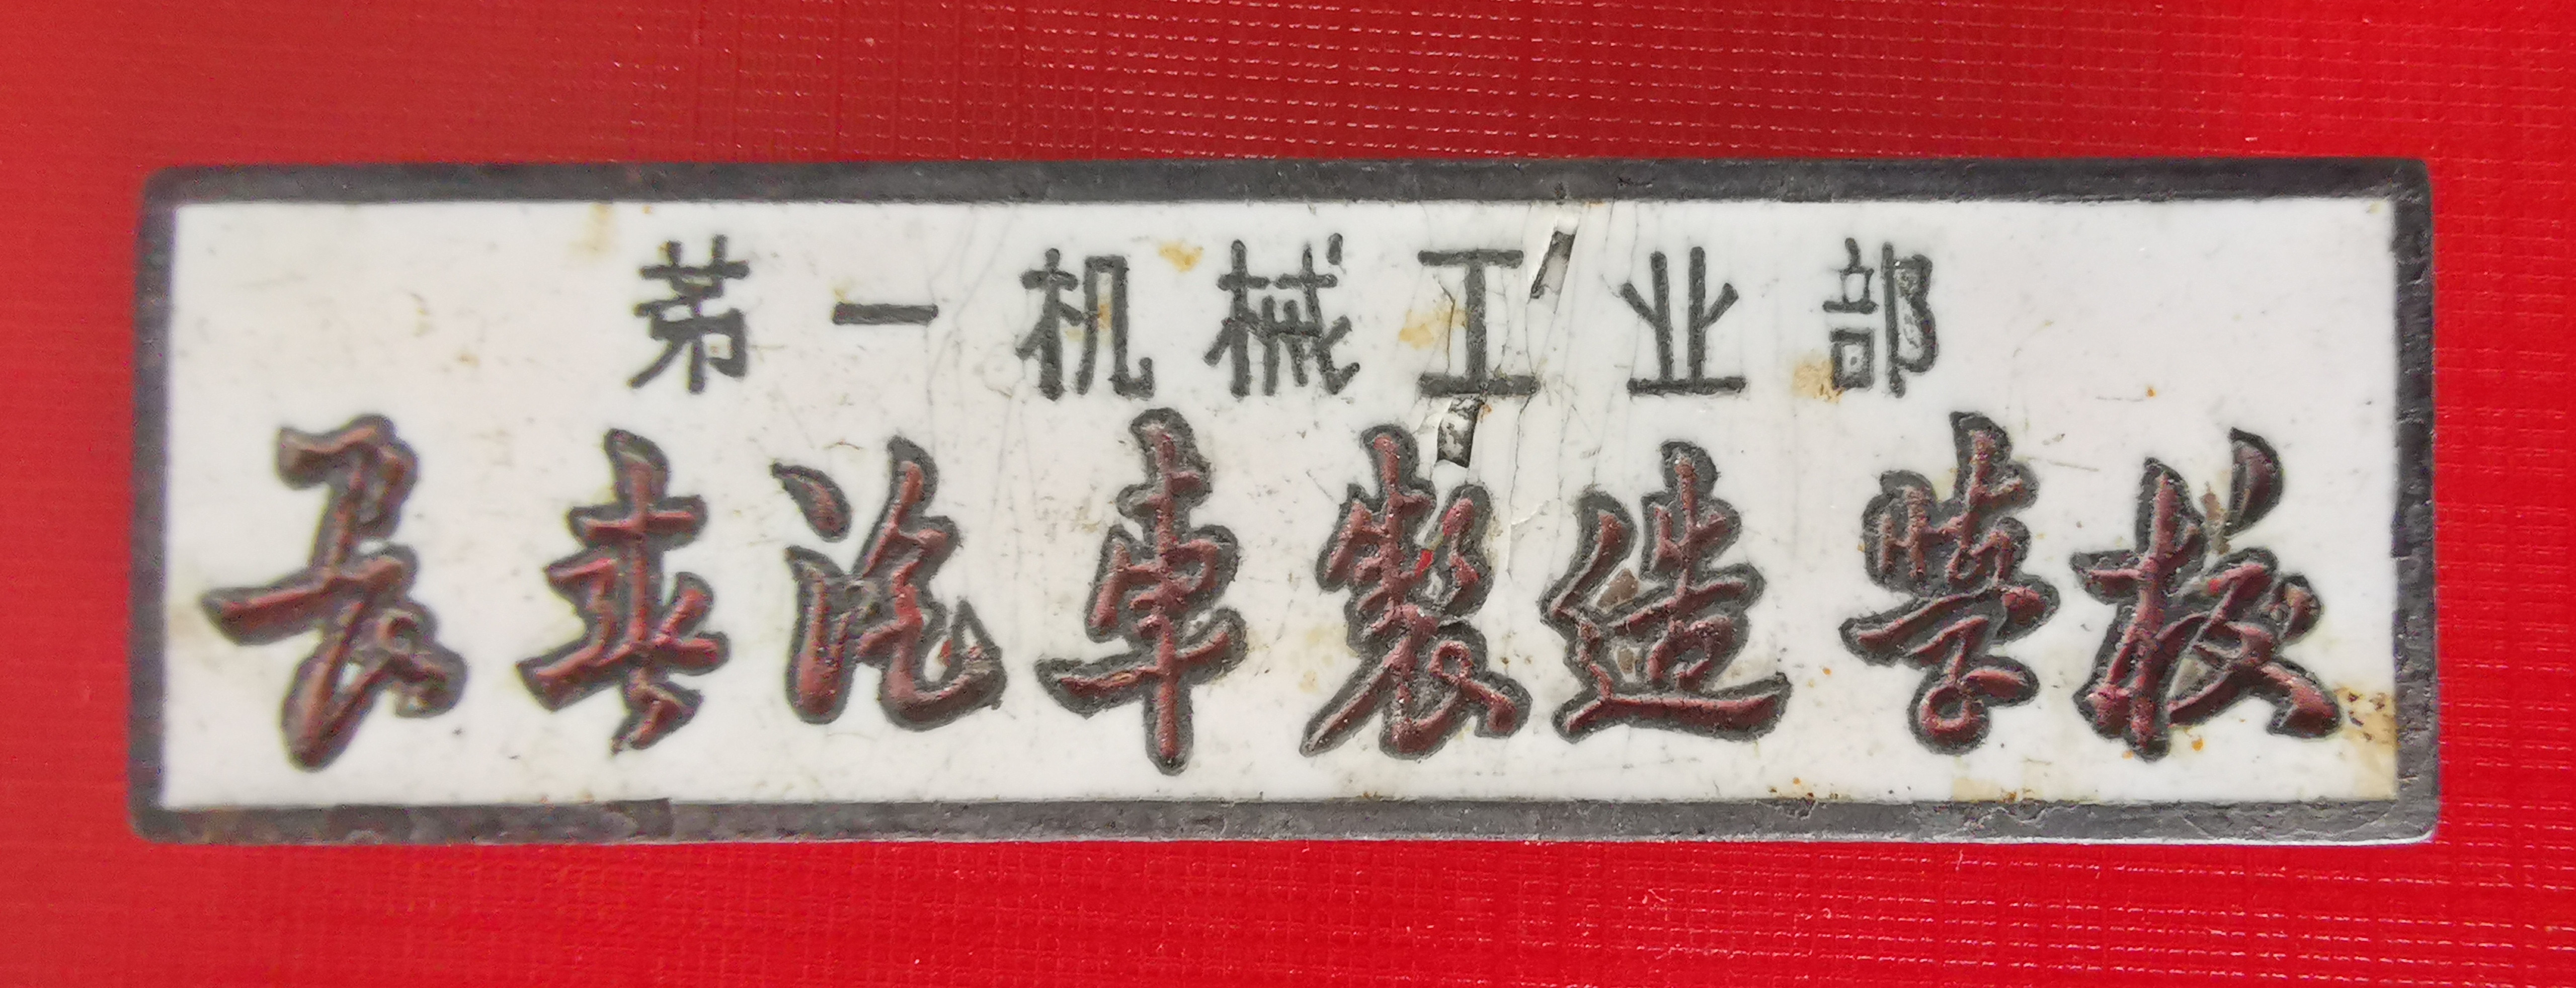 第一机械工业部
長春汽車製造學校